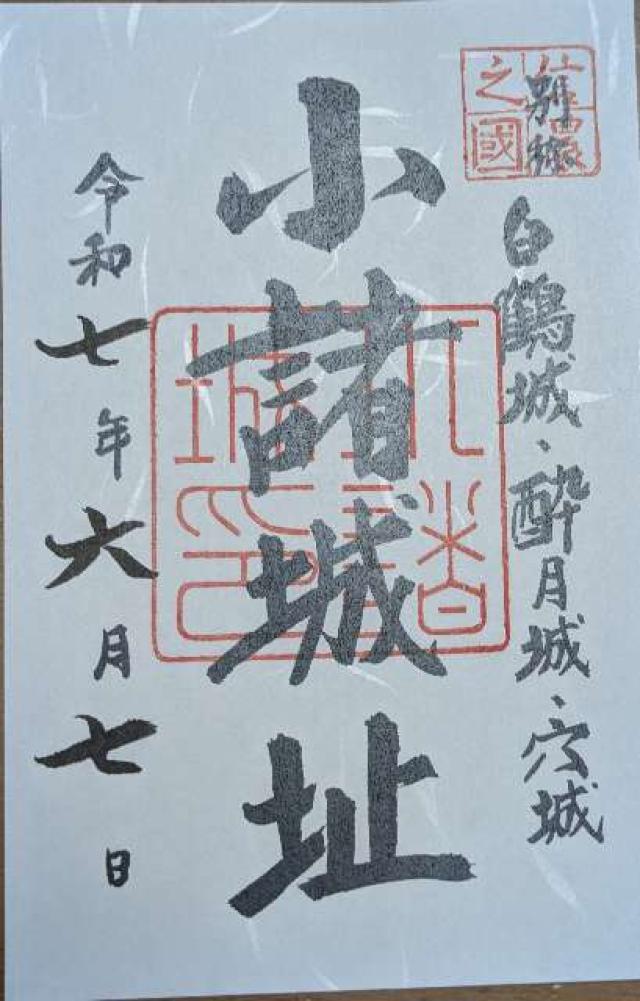 信濃之國
別称
白鶴城、酔月城、穴城
小諸城址
小諸城印
令和七年六月七日